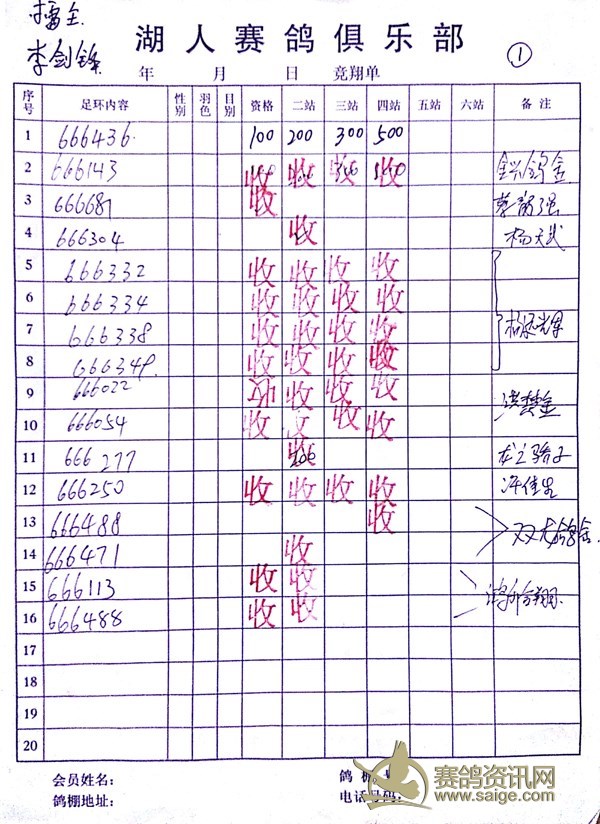 擂主
李剑锋
湖人赛鸽俱乐部
①
年 月 日 竞翔单
序号 足环内容 性别 羽色 目别 资格 二站 三站 四站 五站 六站 备注
1 666436 100 200 300 500
2 666143 收 收 收 收
3 666687 收
4 666304 收 杨天武
5 666332 收 收 收 收
6 666334 收 收 收 收
7 666338 收 收 收 收
8 666349 收 收 收 收
9 666022 收 收 收 收
10 666054 收 收 收 收
11 666277 收 200 龙之骄子
12 666250 收 收 收 收
13 666488 收
14 666471 收
15 666113 收 收
16 666488 收 收
17
18
19
20
会员姓名: 鸽棚
鸽棚地址: 电话号码:
赛鸽资讯网
www.saige.com